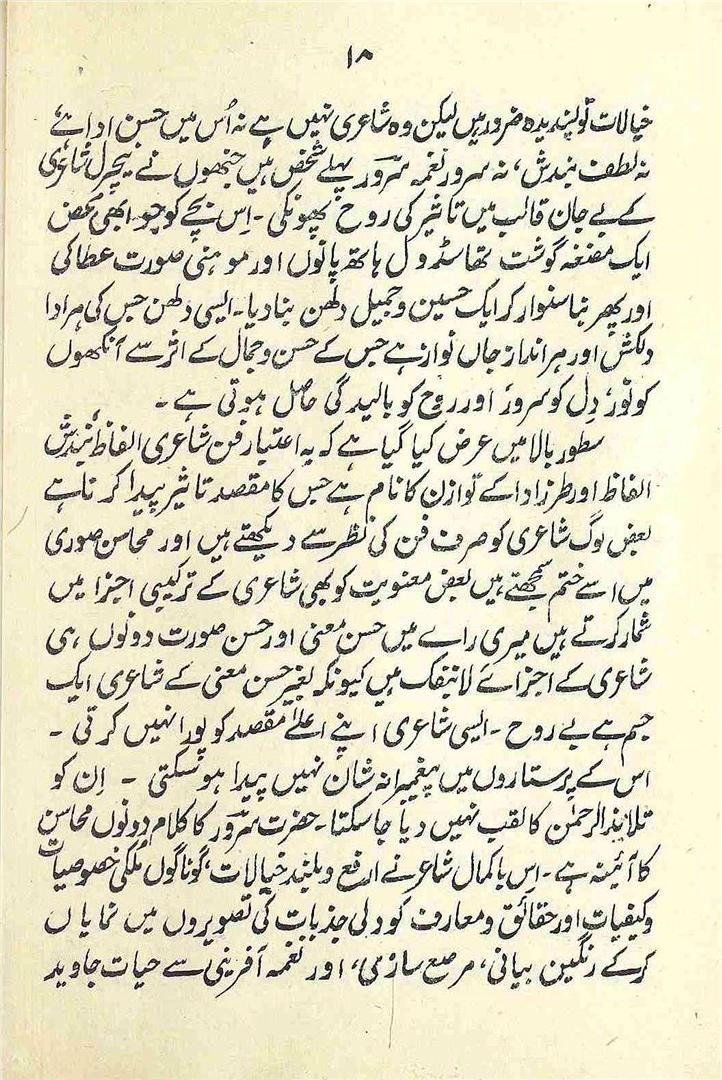 ۱۸
خیالات تو پسندیدہ ضرور ہیں لیکن وہ شاعری نہیں ہے نہ اُس میں حسن ادا ہے
نہ لطف بندش، نہ سرور نغمہ سرور پہلے شخص ہیں جنھوں نے نیچرل شاعری
کے بے جان قالب میں تاثیر کی روح پھونکی ۔ اِس بچے کو جو ابھی محض
ایک مضغہ گوشت تھا سڈول ہاتھ پانوں اور موہنی صورت عطا کی
اور پھر بنا سنوار کر ایک حسین و جمیل دلھن بنا دیا ۔ ایسی دلھن جس کی ہر ادا
دلکش اور ہر انداز جاں نواز ہے جس کے حسن و جمال کے اثر سے آنکھوں
کو نور، دِل کو سرور اور روح کو بالیدگی حاصل ہوتی ہے ۔
سطور بالا میں عرض کیا گیا ہے کہ بہ اعتبار فن شاعری الفاظ، بندش
الفاظ اور طرز ادا کے توازن کا نام ہے جس کا مقصد تاثیر پیدا کرنا ہے
بعض لوگ شاعری کو صرف فن کی نظر سے دیکھتے ہیں اور محاسن صوری
میں اسے ختم سمجھتے ہیں بعض معنویت کو بھی شاعری کے ترکیبی اجزا میں
شمار کرتے ہیں میری رائے میں حسن معنی اور حسن صورت دونوں ہی
شاعری کے اجزائے لاینفک ہیں کیونکہ بغیر حسن معنی کے شاعری ایک
جسم ہے بے روح ۔ ایسی شاعری اپنے اعلیٰ مقصد کو پورا نہیں کرتی ۔
اس کے پرستاروں میں پیغمبرانہ شان نہیں پیدا ہو سکتی ۔ اِن کو
تلامیذ الرحمٰن کا لقب نہیں دیا جا سکتا ۔ حضرت سرور کا کلام دونوں محاسن
کا آئینہ ہے ۔ اِس باکمال شاعر نے ارفع و بلند خیالات، گوناگوں ملکی خصوصیات
و کیفیات اور حقائق و معارف کو دلی جذبات کی تصویروں میں نمایاں
کر کے رنگین بیانی، مرصع سازی، اور نغمہ آفرینی سے حیات جاوید